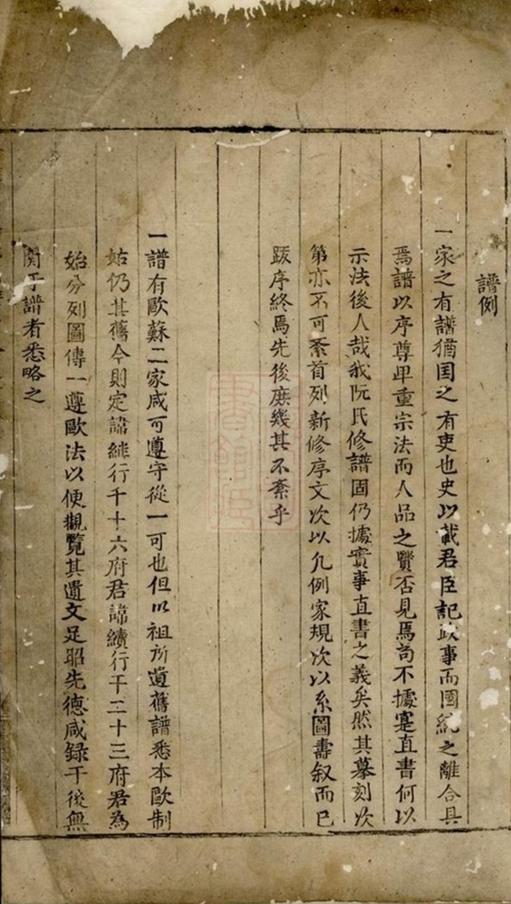 譜例
一家之有譜猶国之有吏也史以載君臣記政事而國統之離合具
焉譜以序尊卑重宗法而人品之贒否見焉苟不據寔直書何以
示法後人哉我阮氏修譜固仍據實事直書之義矣然其摹刻次
第亦不可紊首列新修序文次以凢例家規次以系圖壽叙而已
跋序終焉先後庶幾其不紊乎
一譜有歐蘇二家咸可遵守從一可也但以祖所遺舊譜悉本歐制
姑仍其舊今則定諱緋行千十六府君諱續行千二十三府君為
始分列圖傳一遵歐法以便觀覽其遺文足昭先德咸録于後無
関于譜者悉略之